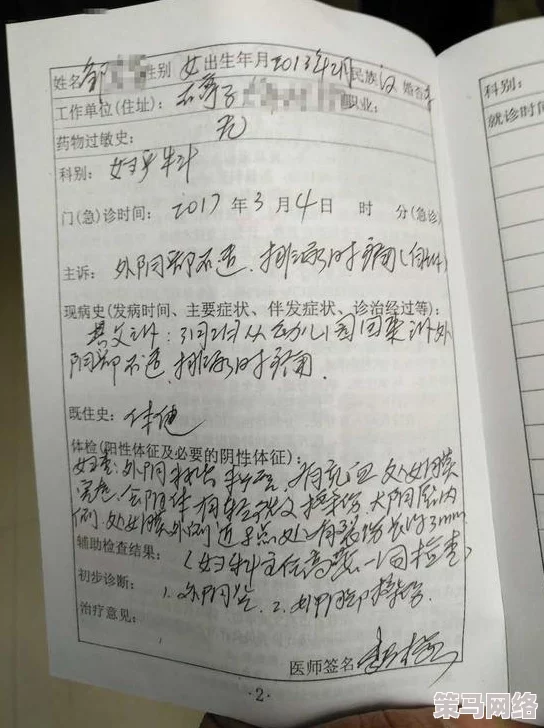 姓名 邹 性别 女 出生年月 2013年2月 民族 汉 婚否
工作单位(住址): 职业:
药物过敏史: 无
科别: 妇产科
门(急)诊时间: 2017 年 3 月 4 日 时 分(急诊)
主诉: 外阴部不适、排尿时疼痛
现病史(发病时间、主要症状、伴发症状、诊治经过等):
患父诉: 3月2日从幼儿园回来诉外
阴部不适、排尿时疼痛.
既往史: 体健
体检(阳性体征及必要的阴性体征):
妇查: 外阴 有充血 处女膜
完整、会阴体有轻微擦伤、大阴唇内
侧、处女膜外侧近 点处有裂伤长约3mm
辅助检查结果: (妇科主任 一同检查)
初步诊断: 1. 外阴炎 2. 外阴部擦伤.
治疗意见:
医师签名
·2·
科别:
就诊时间
策马网络